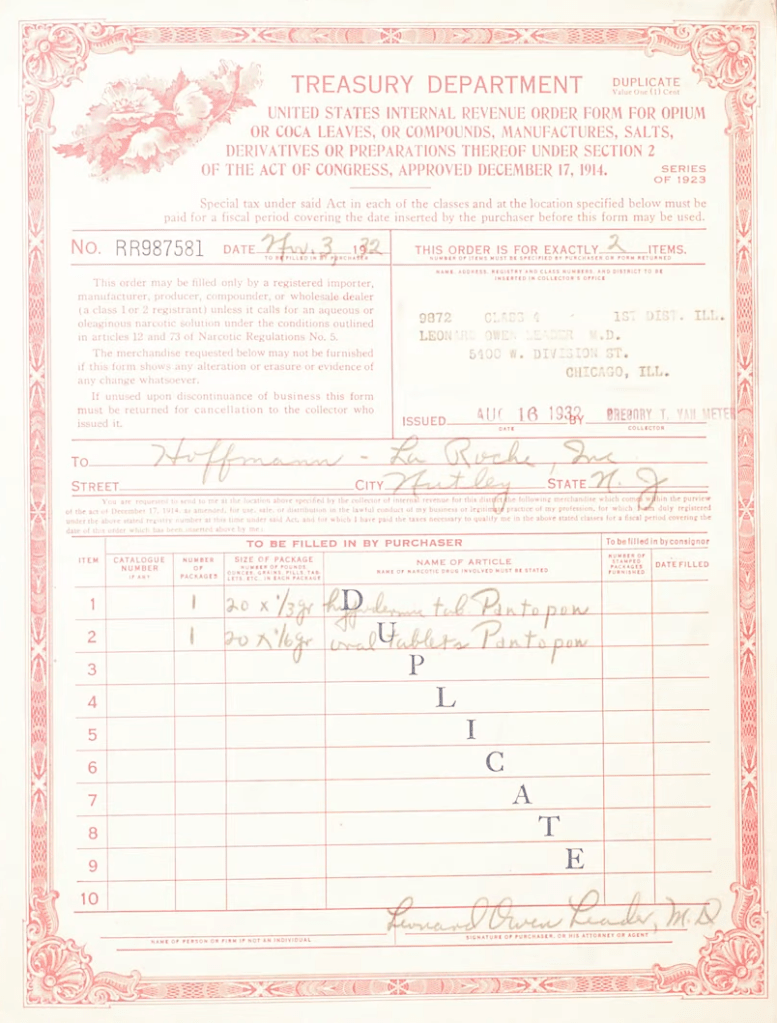 TREASURY DEPARTMENT
DUPLICATE
Value One (1) Cent
UNITED STATES INTERNAL REVENUE ORDER FORM FOR OPIUM
OR COCA LEAVES, OR COMPOUNDS, MANUFACTURES, SALTS,
DERIVATIVES OR PREPARATIONS THEREOF UNDER SECTION 2
OF THE ACT OF CONGRESS, APPROVED DECEMBER 17, 1914.
SERIES
OF 1923
Special tax under said Act in each of the classes and at the location specified below must be
paid for a fiscal period covering the date inserted by the purchaser before this form may be used.
No. RR987581 DATE Nov. 3, 1932
TO BE FILLED IN BY PURCHASER
THIS ORDER IS FOR EXACTLY 2 ITEMS.
NUMBER OF ITEMS MUST BE SPECIFIED BY PURCHASER OR FORM RETURNED
This order may be filled only by a registered importer,
manufacturer, producer, compounder, or wholesale dealer
(a class 1 or 2 registrant) unless it calls for an aqueous or
oleaginous narcotic solution under the conditions outlined
in articles 12 and 73 of Narcotic Regulations No. 5.
The merchandise requested below may not be furnished
if this form shows any alteration or erasure or evidence of
any change whatsoever.
If unused upon discontinuance of business this form
must be returned for cancellation to the collector who
issued it.
NAME, ADDRESS, REGISTRY AND CLASS NUMBERS, AND DISTRICT TO BE
INSERTED IN COLLECTOR'S OFFICE
9872 CLASS 4 1ST DIST. ILL.
LEONARD OWEN LEADER M.D.
5400 W. DIVISION ST.
CHICAGO, ILL.
ISSUED AUG 16 1932 BY GREGORY T. VAN METER
DATE COLLECTOR
TO Hoffmann - La Roche, Inc
STREET CITY Nutley STATE N. J
You are requested to send to me at the location above specified by the collector of internal revenue for this district the following merchandise which comes within the purview
of the act of December 17, 1914, as amended, for use, sale, or distribution in the lawful conduct of my business or legitimate practice of my profession, for which I am duly registered
under the above stated registry number at this time under said Act, and for which I have paid the taxes necessary to qualify me in the above stated classes for a fiscal period covering the
date of this order which has been inserted above by me:
TO BE FILLED IN BY PURCHASER
To be filled in by consignor
ITEM
CATALOGUE
NUMBER
IF ANY
NUMBER
OF
PACKAGES
SIZE OF PACKAGE
NUMBER OF POUNDS
OUNCES, GRAINS, PILLS, TAB-
LETS, ETC., IN EACH PACKAGE
NAME OF ARTICLE
NAME OF NARCOTIC DRUG INVOLVED MUST BE STATED
NUMBER OF
STAMPED
PACKAGES
FURNISHED
DATE FILLED
1 1 20 x 1/3 gr hypodermic tab Pantopon
2 1 20 x 1/6 gr oral tablets Pantopon
3
4
5
6
7
8
9
10
DUPLICATE
Leonard Owen Leader, M.D
NAME OF PERSON OR FIRM IF NOT AN INDIVIDUAL
SIGNATURE OF PURCHASER, OR HIS ATTORNEY OR AGENT